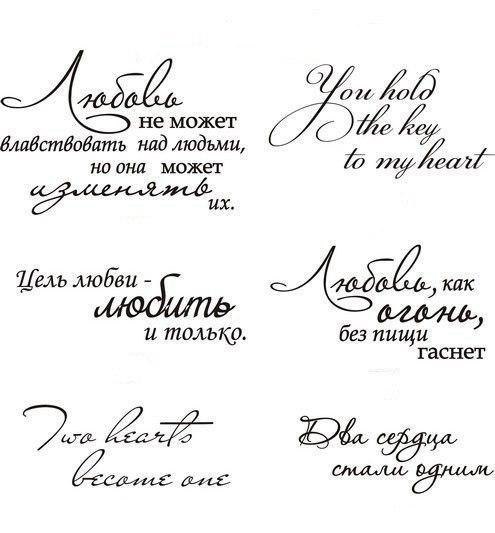 Любовь
не может
влавствовать над людьми,
но она может
изменять
их.
You hold
the key
to my heart
Цель любви -
любить
и только.
Любовь, как
огонь,
без пищи
гаснет
Two hearts
become one
Два сердца
стали одним